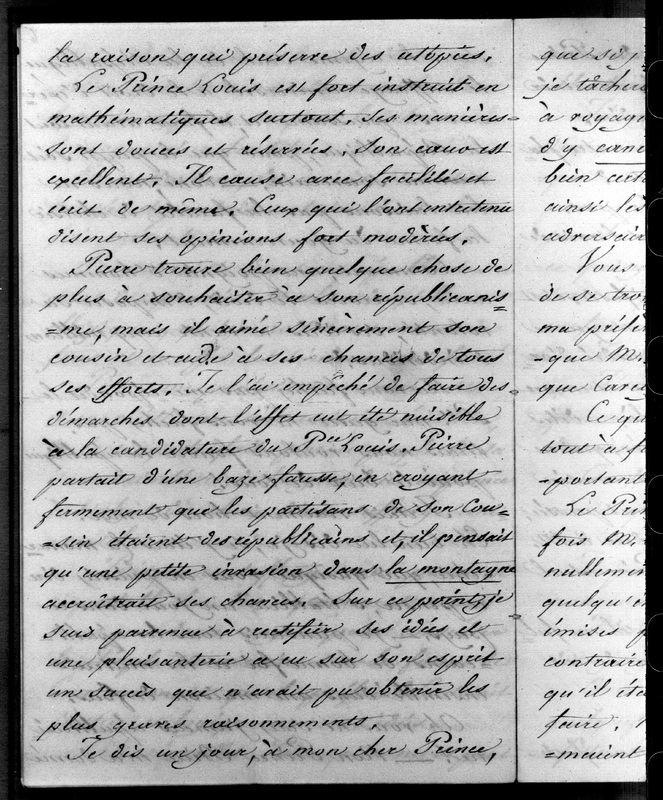 la raison qui préserve des utopies.
Le Prince Louis est fort instruit en
mathématiques surtout. Ses manières
sont douces et réservées, son cœur est
excellent. Il cause avec facilité et
écrit de même. Ceux qui l'ont entretenu
disent ses opinions fort modérées.
Pierre trouve bien quelque chose de
plus à souhaiter à son républicanis=
=me, mais il aime sincèrement son
cousin et aide à ses chances de tous
ses efforts. Je l'ai empêché de faire des
démarches dont l'effet eut été nuisible
à la candidature du Pce Louis. Pierre
partait d'une baze fausse, en croyant
fermement que les partisans de son Cou=
=sin étaient des républicains et, il pensait
qu'une petite invasion dans la montagne
accroîtrait ses chances. Sur ce point, je
suis parvenue à rectifier ses idées et
une plaisanterie a eu sur son esprit
un succès que n'avait pu obtenir les
plus graves raisonnements.
Je dis un jour, à mon cher Prince,
que si j
je tâchera
à voyage
d'y
bien
ainsi les
adversair
Vous
de se trou
ma préfé
-que M.
que
Ce qu
tout à f
-portant
Le Prin
fois M.
nullemen
quelqu'
émises p
contraire
qu'il éta
faire.
=maient